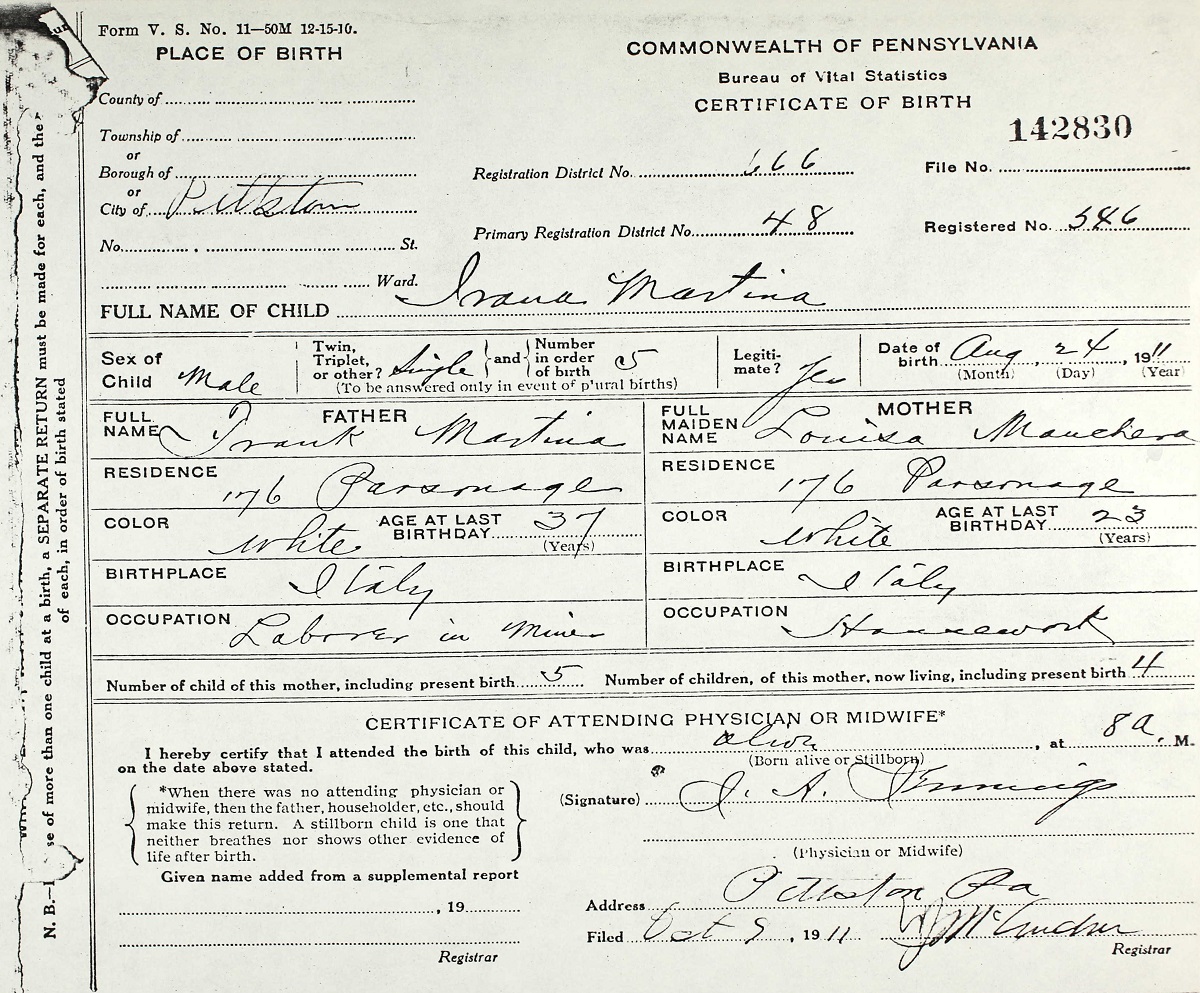 Form V. S. No. 11—50M 12-15-10.
PLACE OF BIRTH
COMMONWEALTH OF PENNSYLVANIA
Bureau of Vital Statistics
CERTIFICATE OF BIRTH
142830
County of
Township of
or
Borough of
or
City of Pittston
No. St.
Ward.
Registration District No. 666
File No.
Primary Registration District No. 48
Registered No. 546
FULL NAME OF CHILD Martina
Sex of Child Male
Twin, Triplet, or other? Single and Number in order of birth 5
(To be answered only in event of plural births)
Legitimate? Yes
Date of birth Aug 24, 1911
(Month) (Day) (Year)
FATHER
FULL NAME Frank Martina
RESIDENCE 176 Parsonage
COLOR White AGE AT LAST BIRTHDAY 37
(Years)
BIRTHPLACE Italy
OCCUPATION Laborer in Mines
MOTHER
FULL MAIDEN NAME Louisa
RESIDENCE 176 Parsonage
COLOR White AGE AT LAST BIRTHDAY 23
(Years)
BIRTHPLACE Italy
OCCUPATION Housework
Number of child of this mother, including present birth 5 Number of children, of this mother, now living, including present birth 4
CERTIFICATE OF ATTENDING PHYSICIAN OR MIDWIFE*
I hereby certify that I attended the birth of this child, who was alive, at 8 a. M.
(Born alive or Stillborn)
on the date above stated.
*When there was no attending physician or
midwife, then the father, householder, etc., should
make this return. A stillborn child is one that
neither breathes nor shows other evidence of
life after birth.
(Signature) J. A. Jennings
(Physician or Midwife)
Given name added from a supplemental report
, 19
Registrar
Address Pittston Pa
Filed Oct 9, 1911
Registrar
N. B.— se of more than one child at a birth, a SEPARATE RETURN must be made for each, and the
of each, in order of birth stated